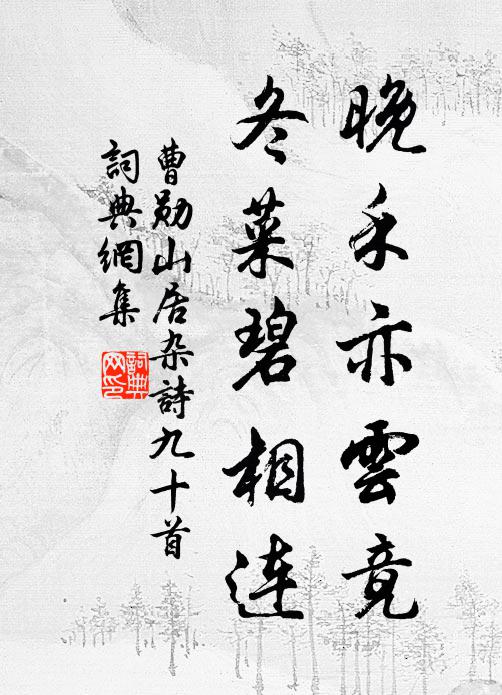 晚禾亦雲竟
冬菜碧相連
曹勛山居杂詩九十首
詞典網集
詞典
网印